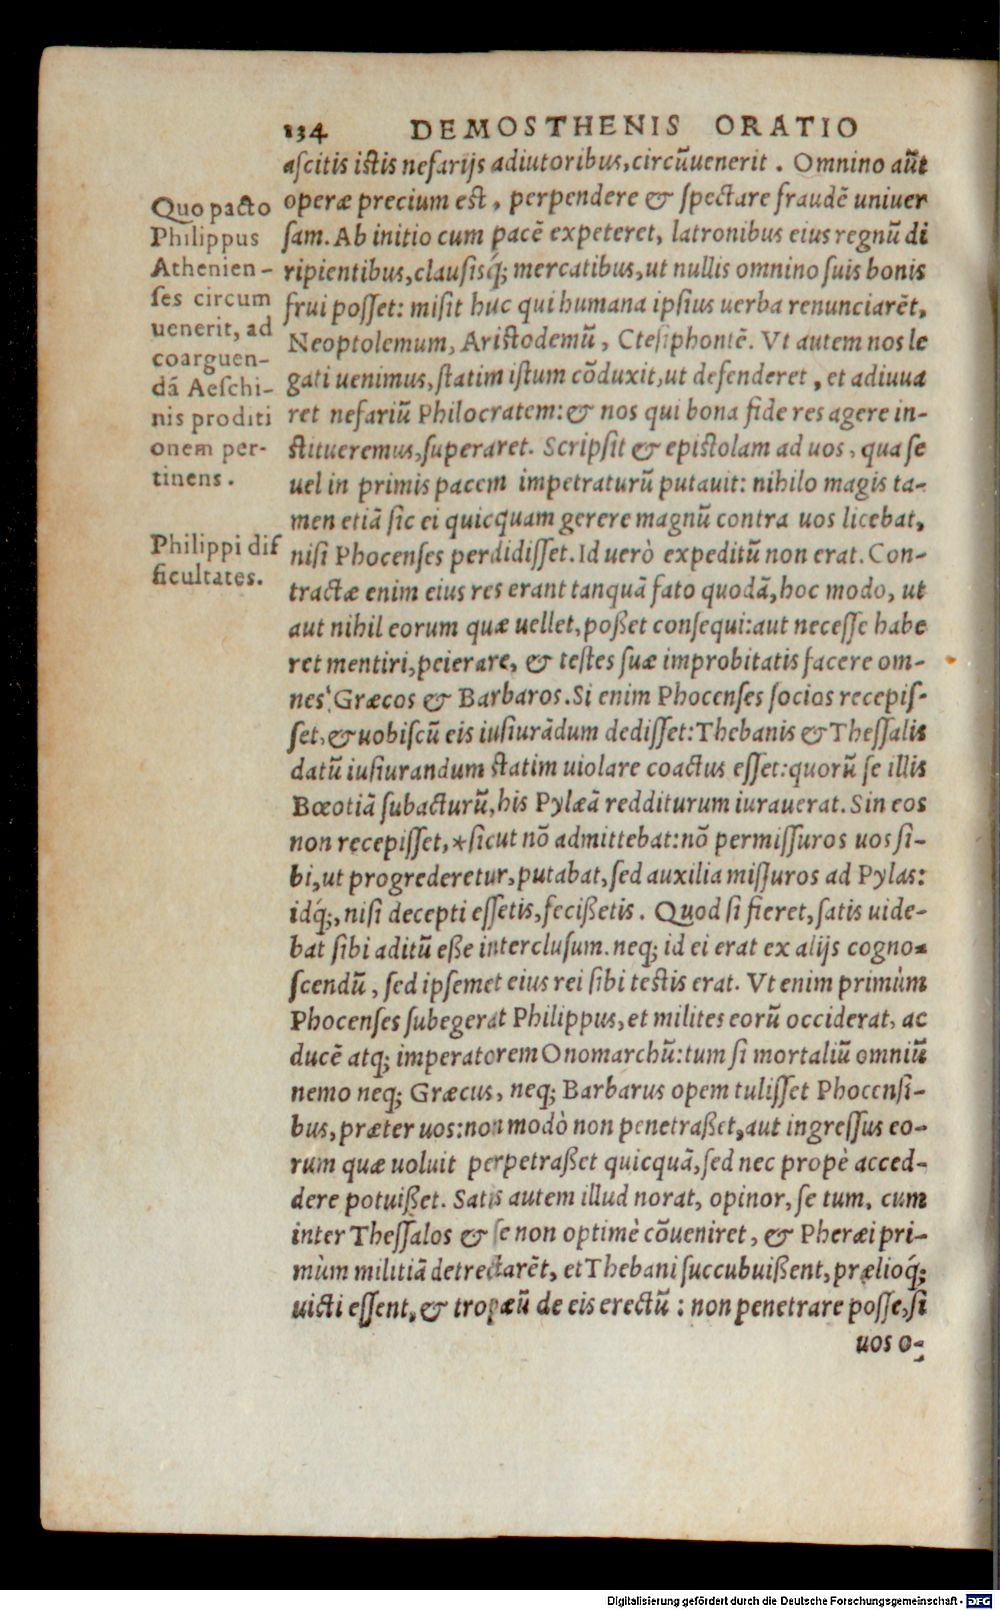 134 DEMOSTHENIS ORATIO
ascitis istis nefarijs adiutoribus, circũuenerit. Omnino aũt
operæ precium est, perpendere & spectare fraudẽ uniuer
sam. Ab initio cum pacẽ expeteret, latronibus eius regnũ di
ripientibus, clausisq́; mercatibus, ut nullis omnino suis bonis
frui posset: misit huc qui humana ipsius uerba renunciarẽt,
Neoptolemum, Aristodemũ, Ctesiphontẽ. Vt autem nos le
gati uenimus, statim istum cõduxit, ut defenderet, et adiuua
ret nefariũ Philocratem: & nos qui bona fide res agere in-
stitueremus, superaret. Scripsit & epistolam ad uos, qua se
uel in primis pacem impetraturũ putauit: nihilo magis ta-
men etiã sic ei quicquam gerere magnũ contra uos licebat,
nisi Phocenses perdidisset. Id uerò expeditũ non erat. Con-
tractæ enim eius res erant tanquã fato quodã, hoc modo, ut
aut nihil eorum quæ uellet, poßet consequi: aut necesse habe
ret mentiri, peierare, & testes suæ improbitatis facere om-
nes Græcos & Barbaros. Si enim Phocenses socios recepis-
set, & uobiscũ eis iusiurãdum dedisset: Thebanis & Thessalis
datũ iusiurandum statim uiolare coactus esset: quorũ se illis
Bœotiã subacturũ, his Pylæã redditurum iurauerat. Sin eos
non recepisset, *sicut nõ admittebat: nõ permissuros uos si-
bi, ut progrederetur, putabat, sed auxilia missuros ad Pylas:
idq́;, nisi decepti essetis, fecißetis. Quod si fieret, satis uide-
bat sibi aditũ eße interclusum. neq; id ei erat ex alijs cogno-
scendũ, sed ipsemet eius rei sibi testis erat. Vt enim primùm
Phocenses subegerat Philippus, et milites eorũ occiderat, ac
ducẽ atq; imperatorem Onomarchũ: tum si mortaliũ omniũ
nemo neq; Græcus, neq; Barbarus opem tulisset Phocensi-
bus, præter uos: non modò non penetraßet, aut ingressus eo-
rum quæ uoluit perpetraßet quicquã, sed nec propè acced-
dere potuißet. Satis autem illud norat, opinor, se tum, cum
inter Thessalos & se non optimè cõueniret, & Pheræi pri-
mùm militiã detrectarẽt, et Thebani succubuißent, prælioq́;
uicti essent, & tropæũ de eis erectũ: non penetrare posse, si
uos o-
Quo pacto
Philippus
Athenien-
ses circum
uenerit, ad
coarguen-
dã Aeschi-
nis proditi
onem per-
tinens.
Philippi dif
ficultates.
Digitalisierung gefördert durch die Deutsche Forschungsgemeinschaft - DFG